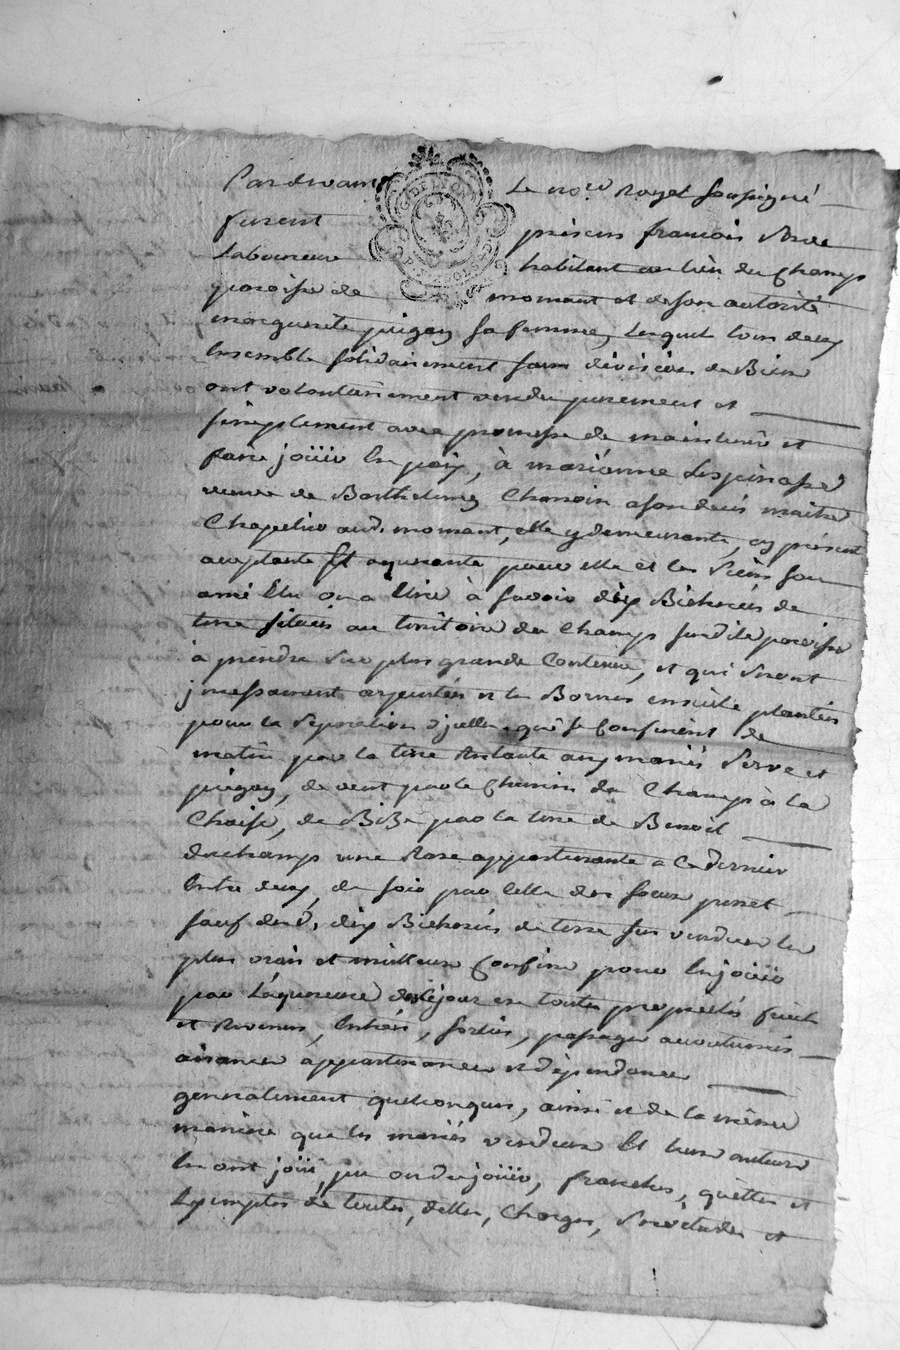 Pardevant Le nore Royal soussigné
furent présens francois Serve
Laboureur habitant au lieu du Champ
paroisse de mornant et de son autorité
marguerite pitigay sa femme, Lesquel tous deux
Ensemble solidairement sans division de Bien
ont volontairement vendu purement et
simplement avec promesse de maintenir et
faire joüir En paix, à marianne Lespinasse
veuve de Barthelemy Chanoin a son deces maitre
Chapelier aud. mornant, elle y demeurante, cy présente
acceptante Et aquerante pour elle et les siens son
ami Elu ou a Elire à savoir dix Bicherées de
terre situées au territoire du Champ susdite paroisse
à prendre sur plus grande Contenue, et qui seront
jncessament arpentées et les Bornes ensuite plantées
pour la separation d'jcelles, qui se Confinent de
matin par la terre Restante auxmariés Serve et
pitigay, de vent par le Chemin du Champ à la
Chaise, de BiBe par la terre de Benoit
duchamp une Rase appartenante a Ce dernier
Entre deux, de soir par celle des soeurs
sauf desd. dix Bicherées de terre sus vendues les
plus vrais et meilleurs Confins pour En joüir
par L'aquereuse dèsCejour en toutes propriétés fruits
et Revenus, Entrées, sorties, passages accoutumés
aisances appartenances et dépendances
generalement quelconques, ainsi et de la même
maniere que les mariés vendeurs Et leurs auteurs
En ont joüi, pu ou du joüir, franches, quittes et
Exemptes de toutes, dettes, Charges, servitudes et
G. DE LYON
2 SOLS